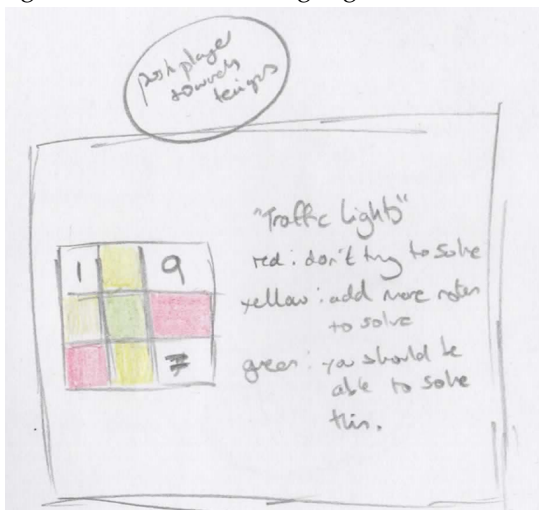 push player
towards
"Traffic Lights"
red : don't try to solve
yellow : add more notes
to solve
green : you should be
able to solve
this.
1 9
7